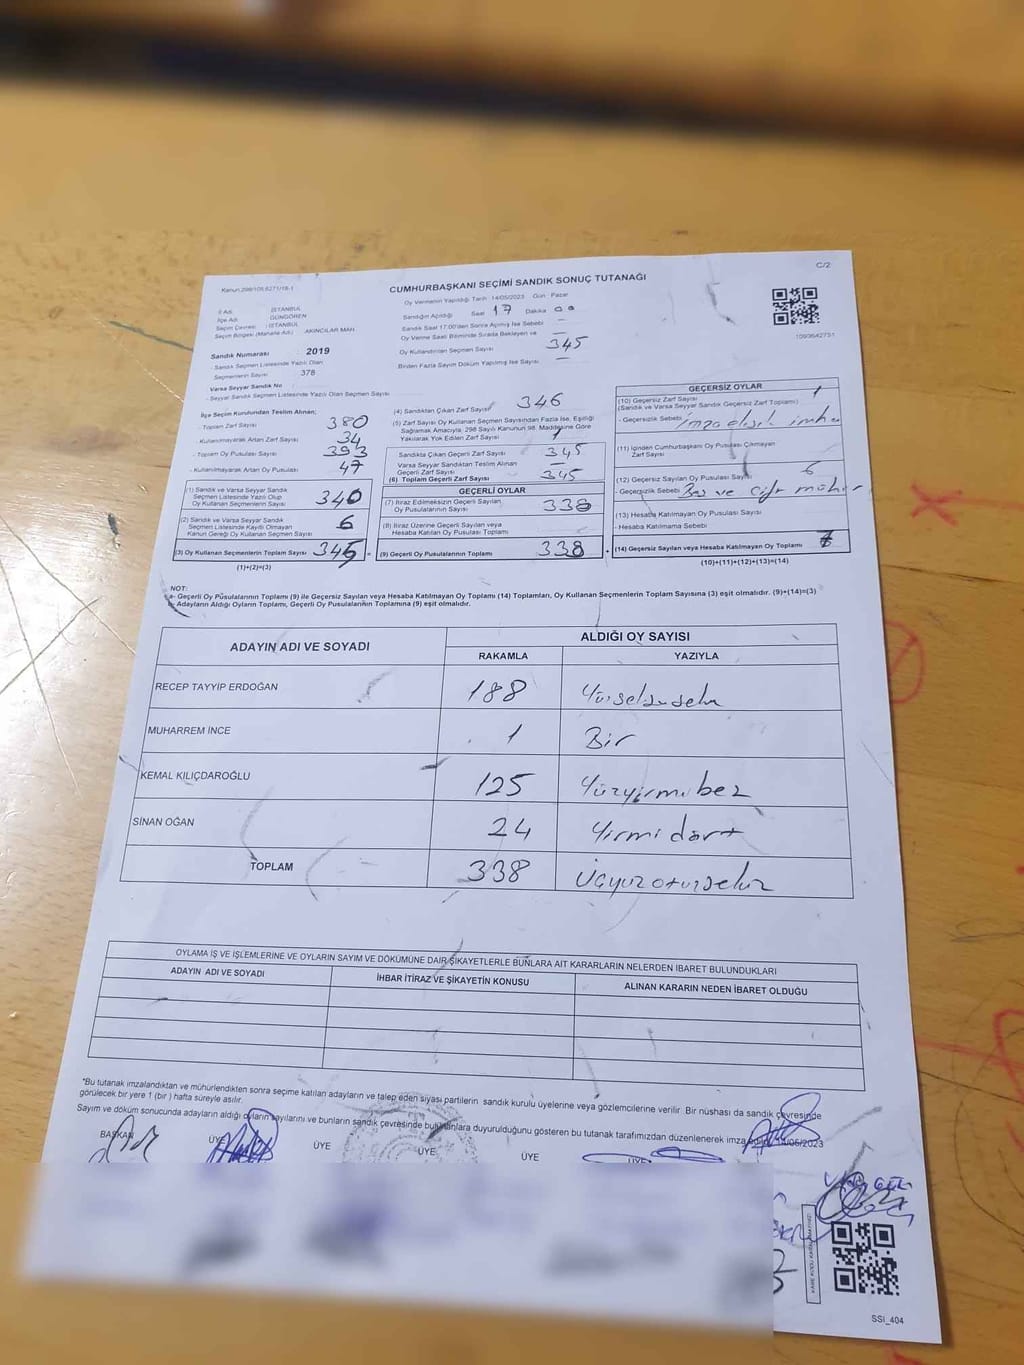 C/2
Kanun:298/105,6271/18-1
CUMHURBAŞKANI SEÇİMİ SANDIK SONUÇ TUTANAĞI
İl Adı : İSTANBUL
İlçe Adı : GÜNGÖREN
Seçim Çevresi : İSTANBUL
Seçim Bölgesi (Mahalle Adı) : AKINCILAR MAH.
Oy Vermenin Yapıldığı Tarih 14/05/2023 Gün Pazar
Sandığın Açıldığı Saat 17 Dakika 00
Sandık Saat 17:00'den Sonra Açılmış İse Sebebi -
Oy Verme Saati Bitiminde Sırada Bekleyen ve
Oy Kullandırılan Seçmen Sayısı 345
Birden Fazla Sayım Döküm Yapılmış İse Sayısı -
1093642751
Sandık Numarası : 2019
- Sandık Seçmen Listesinde Yazılı Olan
Seçmenlerin Sayısı : 378
Varsa Seyyar Sandık No :
- Seyyar Sandık Seçmen Listesinde Yazılı Olan Seçmen Sayısı :
İlçe Seçim Kurulundan Teslim Alınan;
- Toplam Zarf Sayısı : 380
- Kullanılmayarak Artan Zarf Sayısı : 34
- Toplam Oy Pusulası Sayısı : 393
- Kullanılmayarak Artan Oy Pusulası : 47
(1) Sandık ve Varsa Seyyar Sandık
Seçmen Listesinde Yazılı Olup
Oy Kullanan Seçmenlerin Sayısı 340
(2) Sandık ve Varsa Seyyar Sandık
Seçmen Listesinde Kaydı Olmayan
Kanun Gereği Oy Kullanan Seçmen Sayısı 6
(3) Oy Kullanan Seçmenlerin Toplam Sayısı 345 =
(1)+(2)=(3)
(4) Sandıktan Çıkan Zarf Sayısı 346
(5) Zarf Sayısı Oy Kullanan Seçmen Sayısından Fazla İse, Eşitliği
Sağlamak Amacıyla, 298 Sayılı Kanunun 98. Maddesine Göre
Yakılarak Yok Edilen Zarf Sayısı 1
Sandıkta Çıkan Geçerli Zarf Sayısı 345
Varsa Seyyar Sandıktan Teslim Alınan
Geçerli Zarf Sayısı -
(6) Toplam Geçerli Zarf Sayısı 345
GEÇERLİ OYLAR
(7) İtiraz Edilmeksizin Geçerli Sayılan
Oy Pusulasının Sayısı 338
(8) İtiraz Üzerine Geçerli Sayılan veya
Hesaba Katılan Oy Pusulası Toplamı
(9) Geçerli Oy Pusulalarının Toplamı 338 +
GEÇERSİZ OYLAR
(10) Geçersiz Zarf Sayısı 1
(Sandık ve Varsa Seyyar Sandık Geçersiz Zarf Toplamı)
- Geçersizlik Sebebi :
(11) İçinden Cumhurbaşkanı Oy Pusulası Çıkmayan
Zarf Sayısı
(12) Geçersiz Sayılan Oy Pusulası Sayısı 6
- Geçersizlik Sebebi : Boş ve Çift mühür
(13) Hesaba Katılmayan Oy Pusulası Sayısı
- Hesaba Katılmama Sebebi :
(14) Geçersiz Sayılan veya Hesaba Katılmayan Oy Toplamı 7
(10)+(11)+(12)+(13)=(14)
NOT:
a- Geçerli Oy Pusulalarının Toplamı (9) ile Geçersiz Sayılan veya Hesaba Katılmayan Oy Toplamı (14) Toplamları, Oy Kullanan Seçmenlerin Toplam Sayısına (3) eşit olmalıdır. (9)+(14)=(3)
b- Adayların Aldığı Oyların Toplamı, Geçerli Oy Pusulalarının Toplamına (9) eşit olmalıdır.
ADAYIN ADI VE SOYADI ALDIĞI OY SAYISI
RAKAMLA YAZIYLA
RECEP TAYYİP ERDOĞAN 188 Yüzseksensekiz
MUHARREM İNCE 1 Bir
KEMAL KILIÇDAROĞLU 125 Yüzyirmibeş
SİNAN OĞAN 24 Yirmidört
TOPLAM 338 Üçyüzotuzsekiz
OYLAMA İŞ VE İŞLEMLERİNE VE OYLARIN SAYIM VE DÖKÜMÜNE DAİR ŞİKAYETLERLE BUNLARA AİT KARARLARIN NELERDEN İBARET BULUNDUKLARI
ADAYIN ADI VE SOYADI İHBAR İTİRAZ VE ŞİKAYETİN KONUSU ALINAN KARARIN NEDEN İBARET OLDUĞU
"Bu tutanak imzalandıktan ve mühürlendikten sonra seçime katılan adayların ve talep eden siyasi partilerin sandık kurulu üyelerine veya gözlemcilerine verilir. Bir nüshası da sandık çevresinde
görülecek bir yere 1 (bir ) hafta süreyle asılır.
Sayım ve döküm sonucunda adayların aldığı oyların sayılarını ve bunların sandık çevresinde bulunanlara duyurulduğunu gösteren bu tutanak tarafımızdan düzenlenerek imza edildi. 14/05/2023
BAŞKAN ÜYE ÜYE ÜYE ÜYE ÜYE
SSI_404